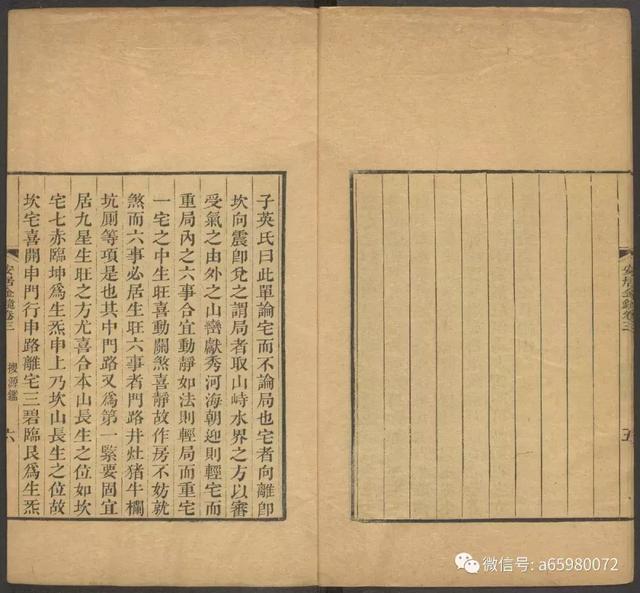 子英氏曰此單論宅而不論局也宅者向離卽
坎向震卽兌之謂局者取山峙水界之方以審
受氣之由外之山巒獻秀河海朝迎則輕宅而
重局內之六事合宜動靜如法則輕局而重宅
一宅之中生旺喜動關煞喜靜故作房不妨就
煞而六事必居生旺六事者門路井灶猪牛欄
坑厠等項是也其中門路又爲第一緊要固宜
居九星生旺之方尤喜合本山長生之位如坎
宅七赤臨坤爲生炁申上乃坎山長生之位故
坎宅喜開申門行申路離宅三碧臨艮爲生炁
安居金鏡卷三
搜源鑑
六
安居金鏡卷三
五
微信号: a65980072